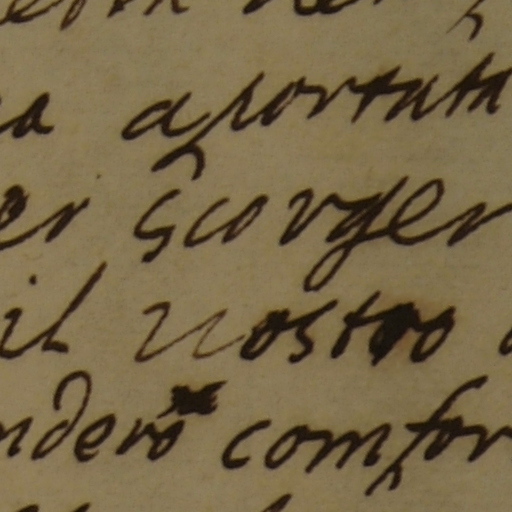 a aportata
er scorger
il nostro
nderò comfor